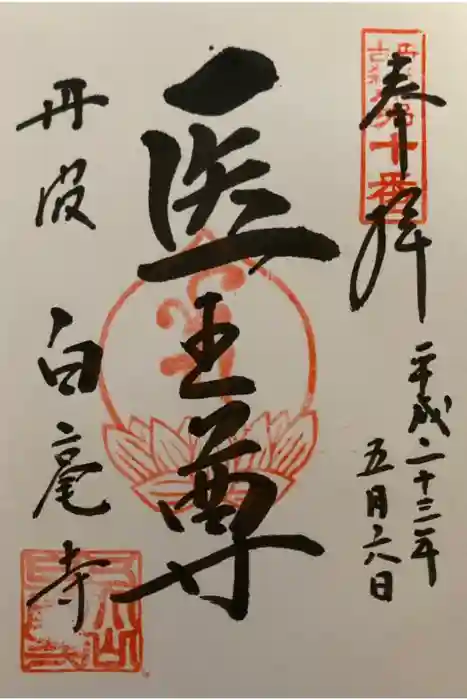 奉拝
平成二十三年
五月六日
医王尊
丹波 白毫寺
第十番